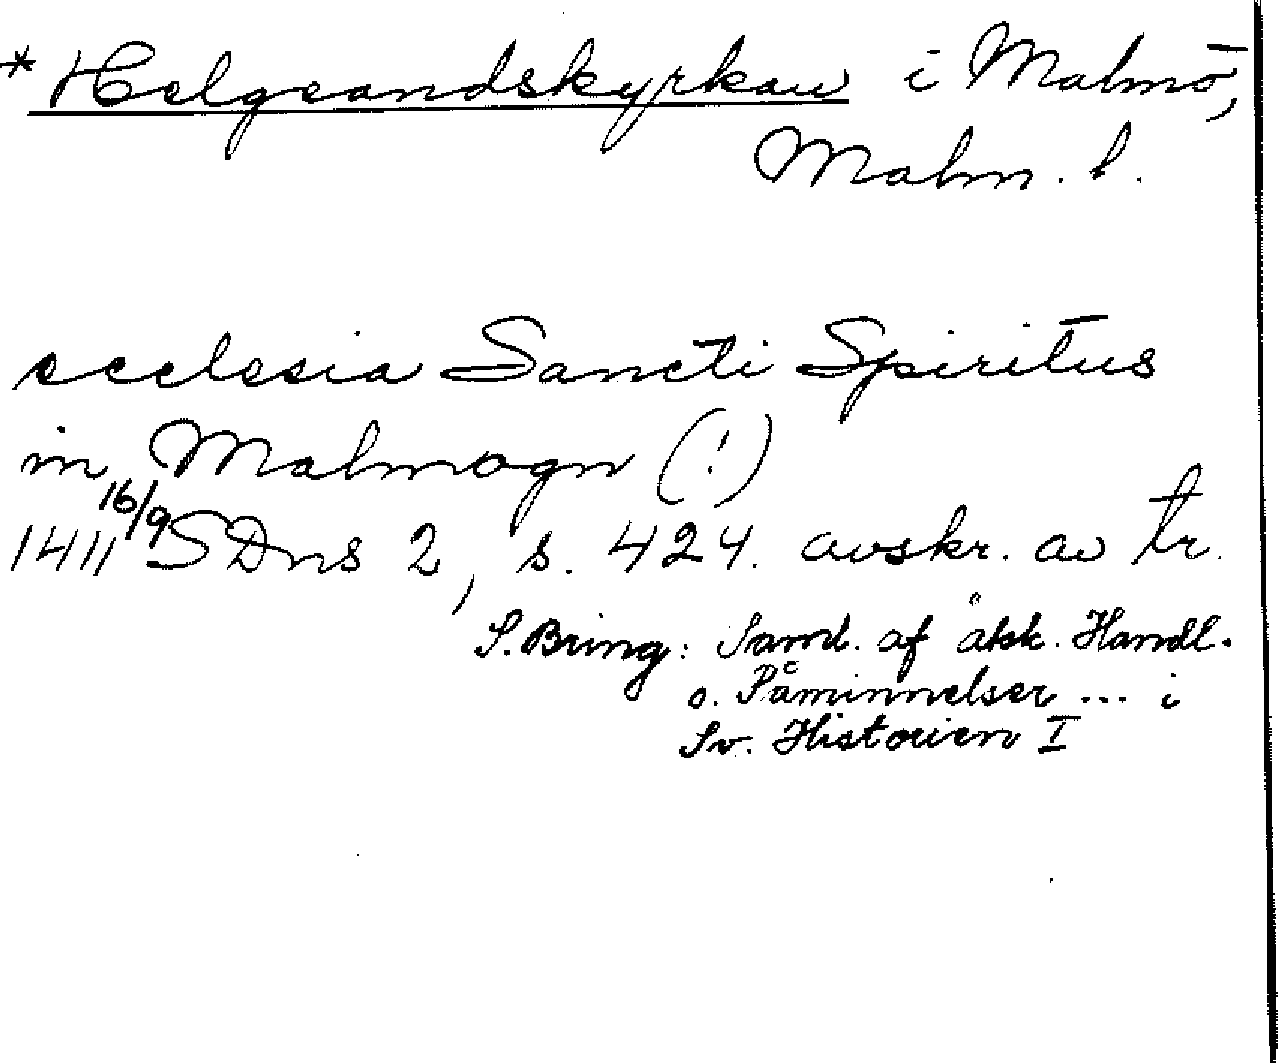 *Helgeandskyrkan i Malmö,
Malm. l.
ecclesia Sancti Spiritus
in Malmogn (!)
1411 16/9 SDns 2, s. 424. avskr. av tr.
S. Bring: Saml. af åsk. Handl.
o. Påminnelser ... i
Sv. Historien I